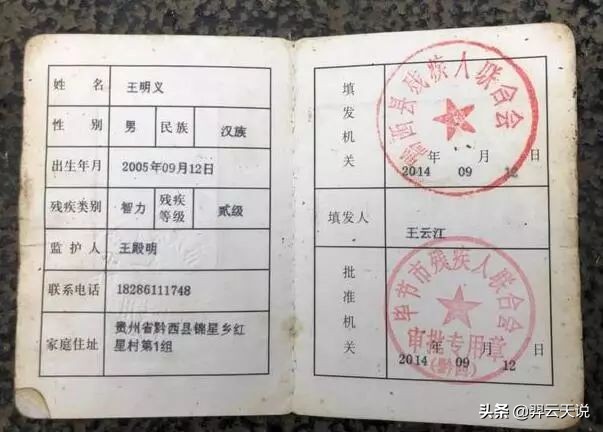 姓名 王明义
性别 男 民族 汉族
出生年月 2005年09月12日
残疾类别 智力 残疾等级 贰级
监护人 王殿明
联系电话 18286111748
家庭住址 贵州省黔西县锦星乡红
星村第1组
填发机关
黔西县残疾人联合会
年 月 日
2014 09 12
填发人 王云江
批准机关
毕节市残疾人联合会
审批专用章
(黔西)
年 月 日
2014 09 12
头条 @羿云天说